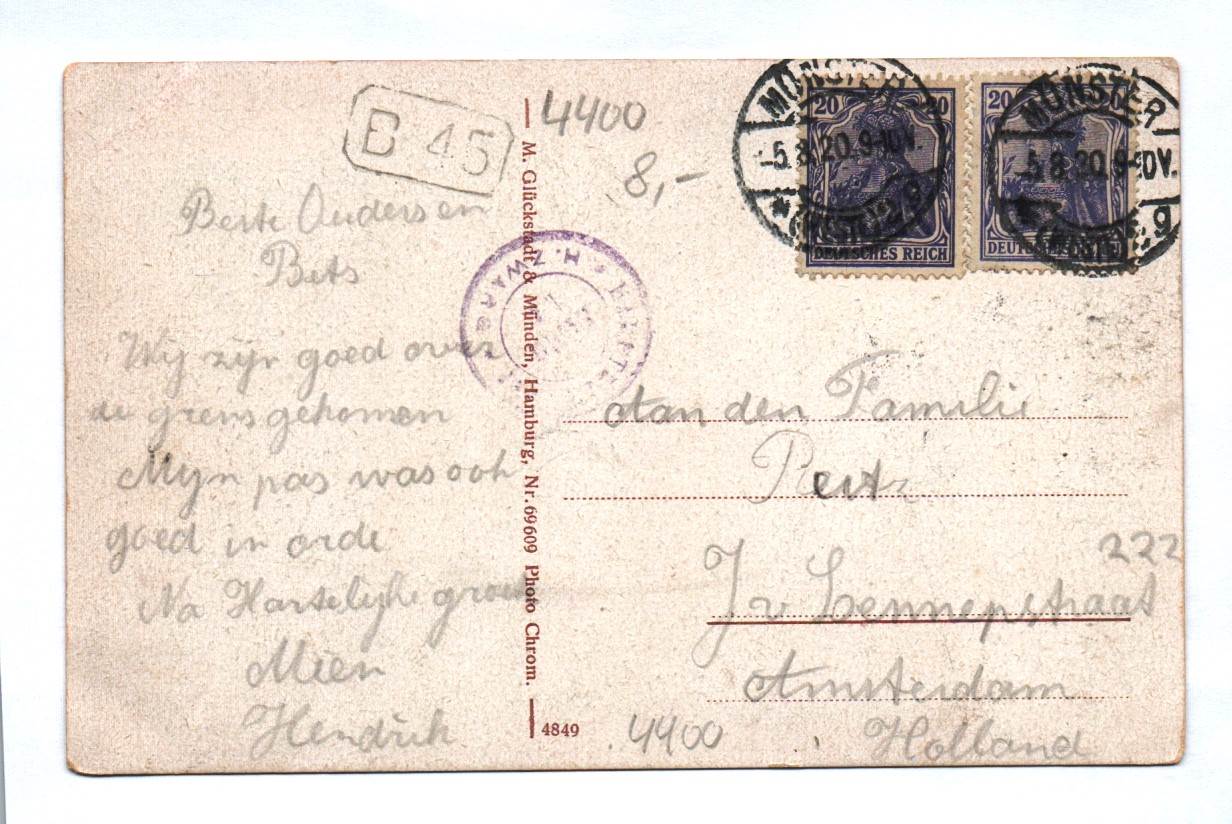 B 45
4400
8,-
MÜNSTER
-5.8.20.9-10V.
(WESTF.)2 g
20 20
DEUTSCHES REICH
MÜNSTER
-5.8.20.9-10V.
(WESTF.) g
20
DEUTSCHES REICH
Beste Ouders en
Bets
Wij zijn goed over
de grens gekomen
Mijn pas was ook
goed in orde
Na Hartelijke groet
Mien
Hendrik
M. Glückstadt & Münden, Hamburg, Nr. 69609 Photo Chrom.
4849
4400
Aan den Familie
222
J v Lennepstraat
Amsterdam
Holland